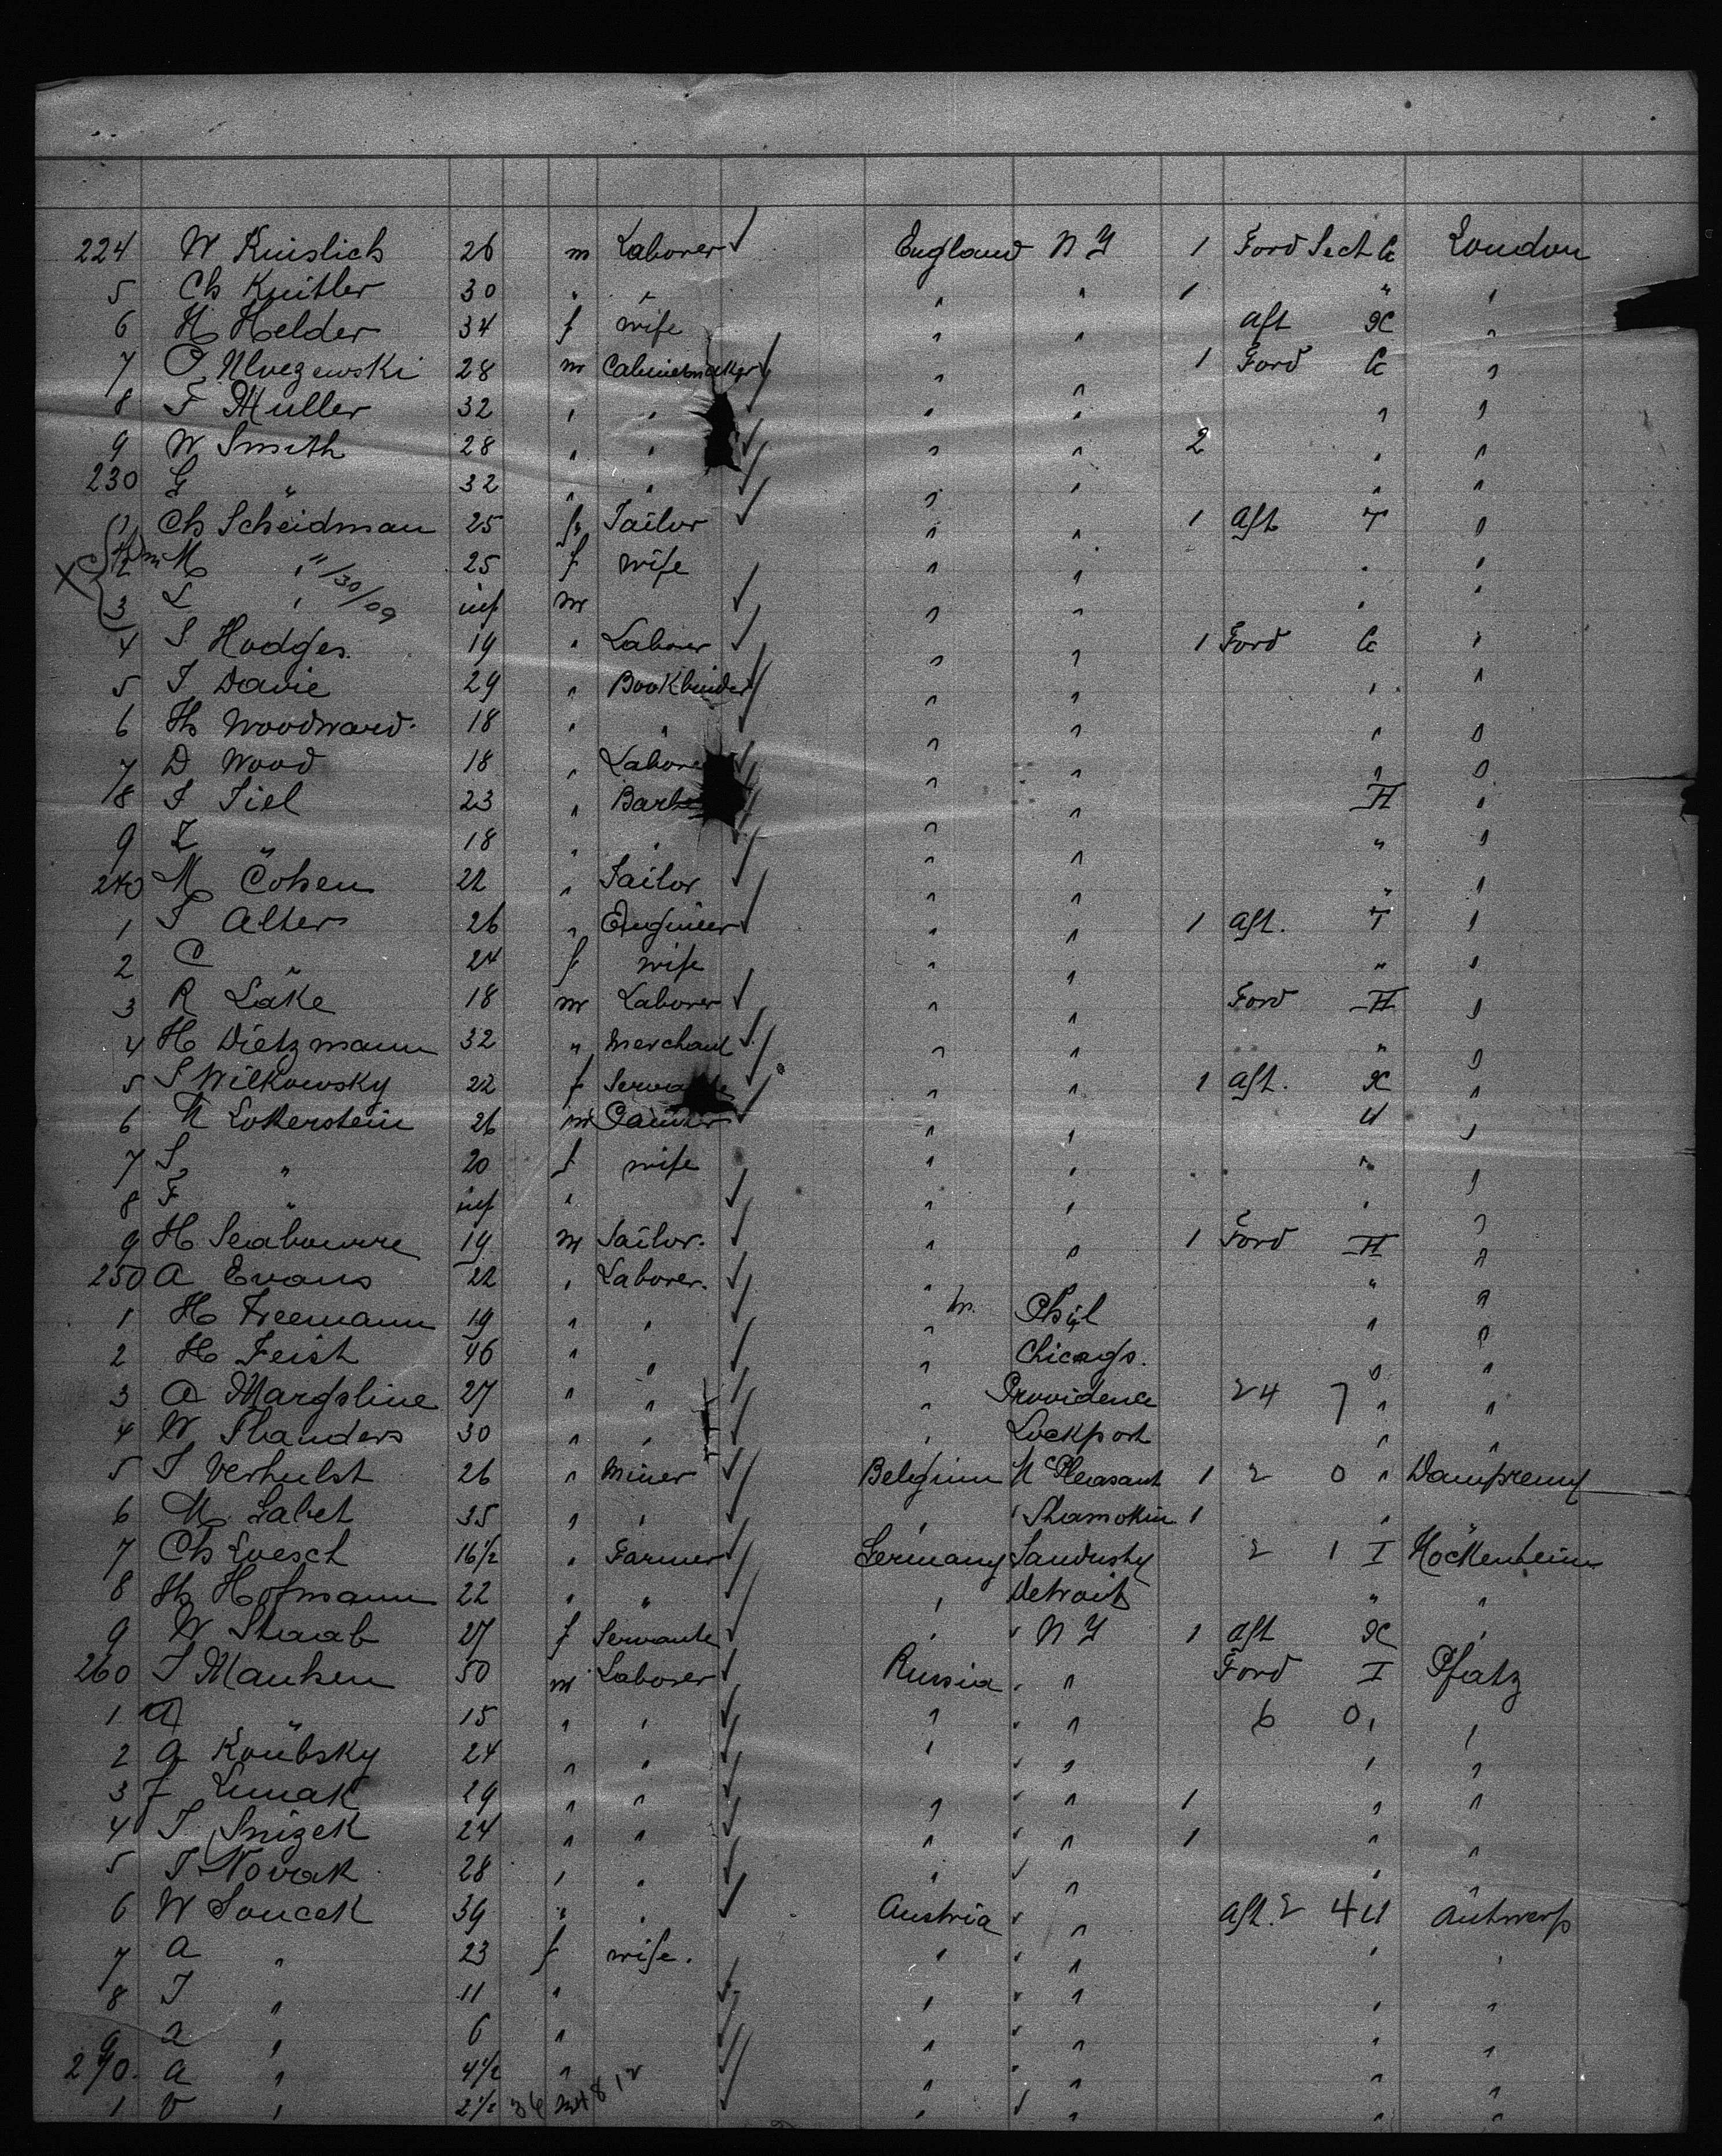 224 W Kuislich 26 m Laborer ✓ England N Y 1 Ford Sect G London
5 Ch Knitler 30 " " " " 1 " "
6 H Helder 34 f wife " " Aft K "
7 28 m Cabinetmaker ✓ " " 1 Ford G "
8 F Muller 32 " " " " " "
9 W Smith 28 " " ✓ " " 2 " "
230 G " 32 " " ✓ " " " "
1 Ch Scheidman 25 Tailor ✓ " " 1 Aft T "
2 M " 25 f wife " " " "
11/30/09
X 3 L " inf m ✓ " " " "
4 S Hodges. 19 " Laborer ✓ " " 1 Ford G "
5 J Davie 29 " Bookbinder ✓ " " " "
6 Th Woodward. 18 " " ✓ " " " "
7 D Wood 18 " Labore ✓ " " " "
8 J Tiel 23 " Barbe ✓ " " H "
9 Z " 18 " " ✓ " " " "
240 M Cohen 22 " Tailor ✓ " " " "
1 S Alter 26 " Engineer ✓ " " 1 Aft. T "
2 C " 24 f wife " " " "
3 R Lake 18 m Laborer ✓ " " Ford H "
4 H Dietzmann 32 " Merchant ✓ " " " "
5 S Wilkowsky 22 f Servante ✓ " " 1 Aft. K "
6 Lokerstein 26 m Painter ✓ " " U "
7 S " 20 f wife " " " "
8 F " inf " ✓ " " " "
9 H Seabourre 19 m Sailor. ✓ " " 1 Ford H "
250 A Evans 22 " Laborer. ✓ " " " "
1 H Freemann 19 " " ✓ " Phil " "
2 H Feist 46 " " ✓ " Chicago. " "
3 A Margoline 27 " " ✓ " Providence 24 7 " "
4 W Flanders 30 " " ✓ " Lockport " "
5 J Verhulst 26 " Miner ✓ Belgium Mc Pleasant 1 2 0 " Dampremy
6 M. Galet 35 " " ✓ " Shamokin 1 "
7 Ch Loesch 16½ " Farmer ✓ Germany Sandusky 2 1 I Hockenheim
8 Th Hofmann 22 " " ✓ " Detroit " "
9 W Staab 27 f Servante ✓ " N Y 1 Aft K "
260 J Manken 50 m Laborer ✓ Russia " " Ford I Pfatz
1 A " 15 " " ✓ " " " 6 0 " "
2 A Koubsky 24 " " ✓ " " " " "
3 F 29 " " ✓ " " " 1 " "
4 J Snizek 24 " " ✓ " " " 1 " "
5 J Novak 28 " " ✓ " " " " "
6 W Soucek 39 " " ✓ Austria " " Aft. 2 4 U Antwerp
7 A " 23 f wife. " " " " "
8 J " 11 " ✓ " " " " "
9 A " 6 " ✓ " " " "
270. A " 4½ " ✓ " " " " "
1 V " 2½ 36 m 48 12 ✓ " " " " "